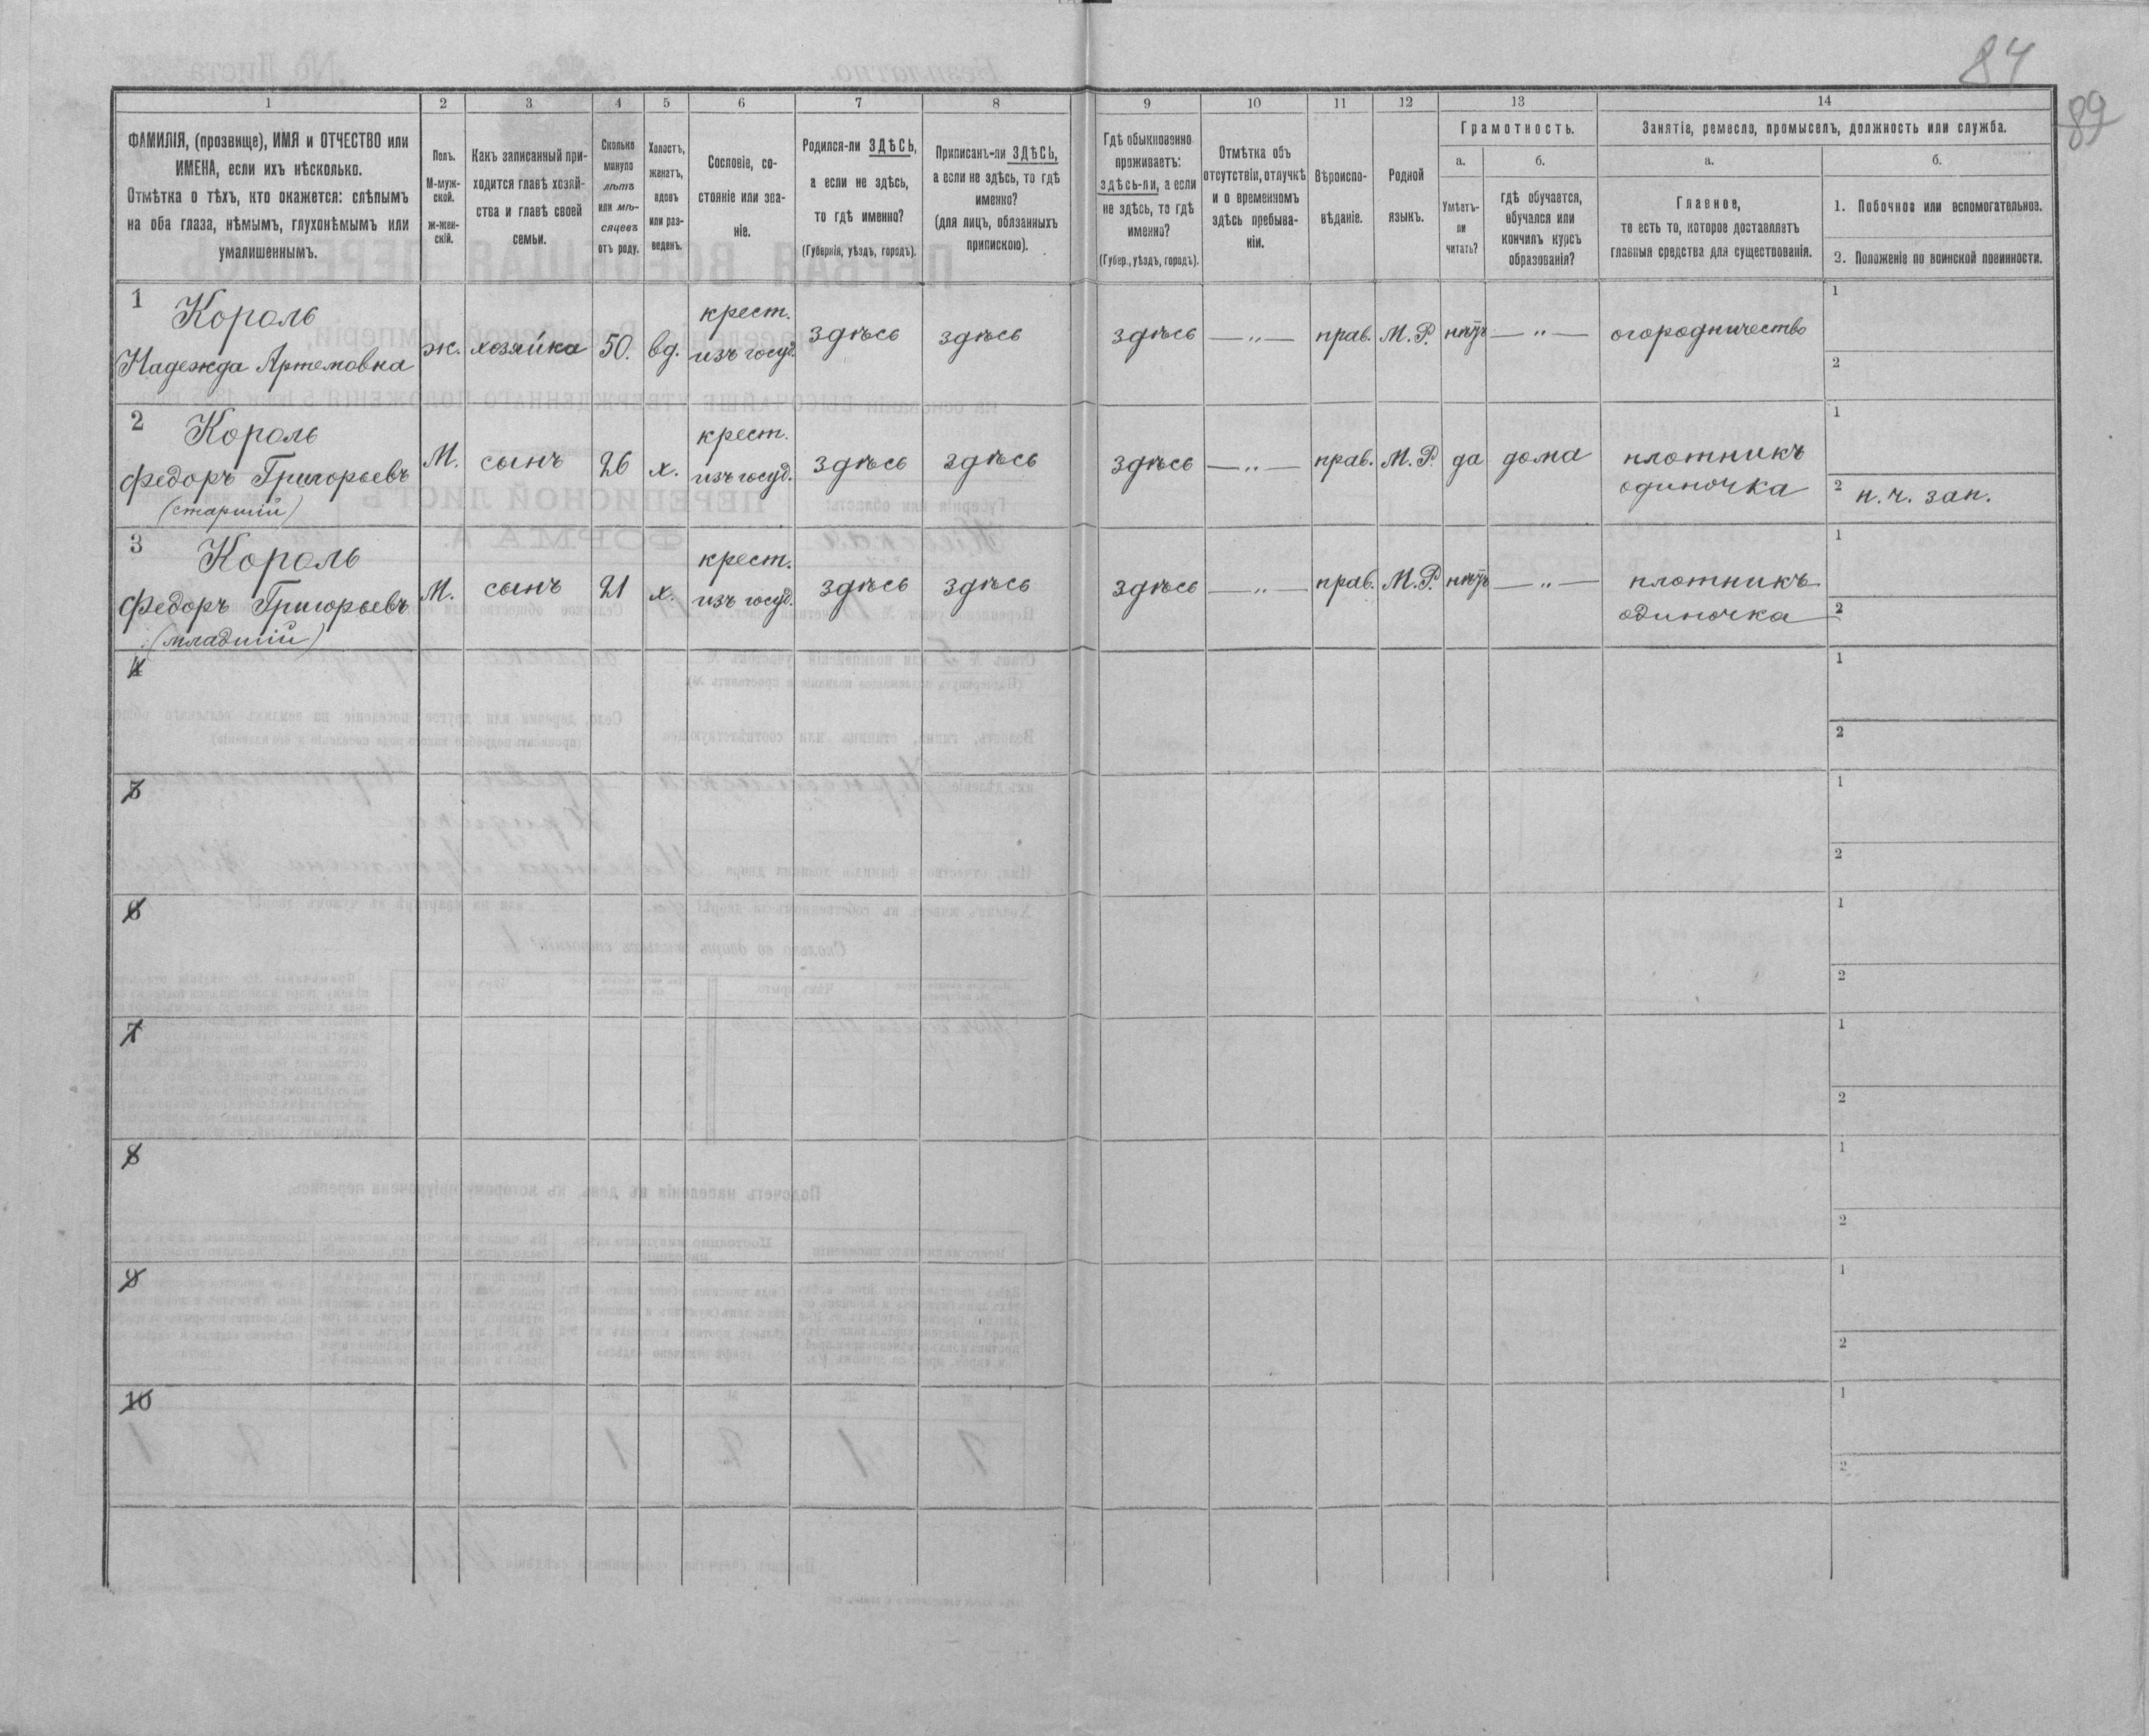 84
89
1 2 3 4 5 6 7 8 9 10 11 12 13 14
ФАМИЛІЯ, (прозвище), ИМЯ и ОТЧЕСТВО или
ИМЕНА, если ихъ нѣсколько.
Отмѣтка о тѣхъ, кто окажется: слѣпымъ
на оба глаза, нѣмымъ, глухонѣмымъ или
умалишеннымъ.
Полъ.
М-муж-
ской.
ж-жен-
скій.
Какъ записанный при-
ходится главѣ хозяй-
ства и главѣ своей
семьи.
Сколько
минуло
лѣтъ
или мѣ-
сяцевъ
отъ роду.
Холостъ,
женатъ,
вдовъ
или раз-
веденъ.
Сословіе, со-
стояніе или зва-
ніе.
Родился-ли ЗДѢСЬ,
а если не здѣсь,
то гдѣ именно?
(Губернія, уѣздъ, городъ).
Приписанъ-ли ЗДѢСЬ,
а если не здѣсь, то гдѣ
именно?
(для лицъ, обязанныхъ
припискою).
Гдѣ обыкновенно
проживаетъ:
здѣсь-ли, а если
не здѣсь, то гдѣ
именно?
(Губер., уѣздъ, городъ).
Отмѣтка объ
отсутствіи, отлучкѣ
и о временномъ
здѣсь пребыва-
ніи.
Вѣроиспо-
вѣданіе.
Родной
языкъ.
Грамотность.
а.
Умѣетъ-
ли
читать?
б.
гдѣ обучается,
обучался или
кончилъ курсъ
образованія?
Занятіе, ремесло, промыселъ, должность или служба.
а.
Главное,
то есть то, которое доставляетъ
главныя средства для существованія.
б.
1. Побочное или вспомогательное.
2. Положеніе по воинской повинности.
1 Король крест. 1
Надежда Артемовна ж. хозяйка 50. вд. изъ госуд. здѣсь здѣсь здѣсь — „ — прав. М. Р. нѣтъ — „ — огородничество
2
2 Король крест. 1
Федоръ Григорьевъ М. сынъ 26 х. изъ госуд. здѣсь здѣсь здѣсь — „ — прав. М. Р. да дома плотникъ
(старшій) одиночка 2 н. ч. зап.
3 Король крест. 1
Федоръ Григорьевъ М. сынъ 21 х. изъ госуд. здѣсь здѣсь здѣсь — „ — прав. М. Р. нѣтъ — „ — плотникъ
(младшій) одиночка 2
4 1
2
5 1
2
6 1
2
7 1
2
8 1
2
9 1
2
10 1
2